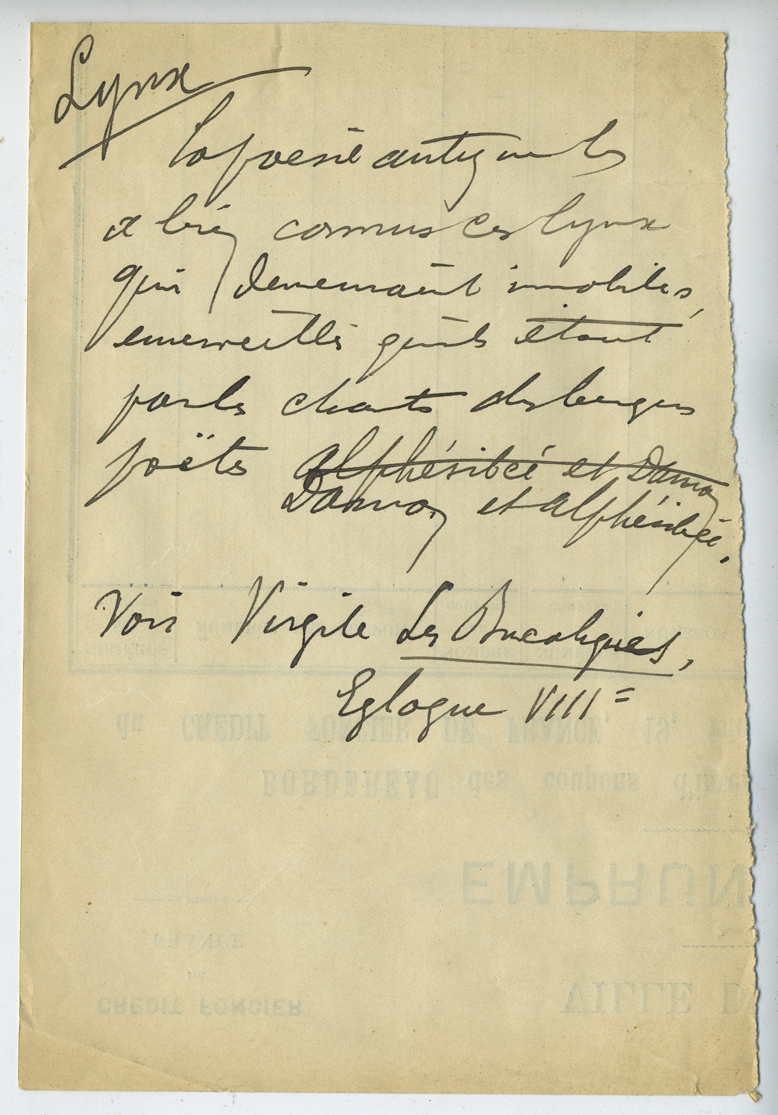 Lynx
La poésie antique les
a bien connus ces lynx
qui demeuraient immobiles,
émerveillés qu'ils étaient
par les chants des bergers
poëtes Alphésibée et Damon
Damon et Alphésibée.
Voir Virgile Les Bucoliques,
Eglogue VIII=
du CRÉDIT FONCIER DE FRANCE, 19,
BORDEREAU des coupons d'
EMPRUN
FRANCE
CRÉDIT FONCIER
VILLE D